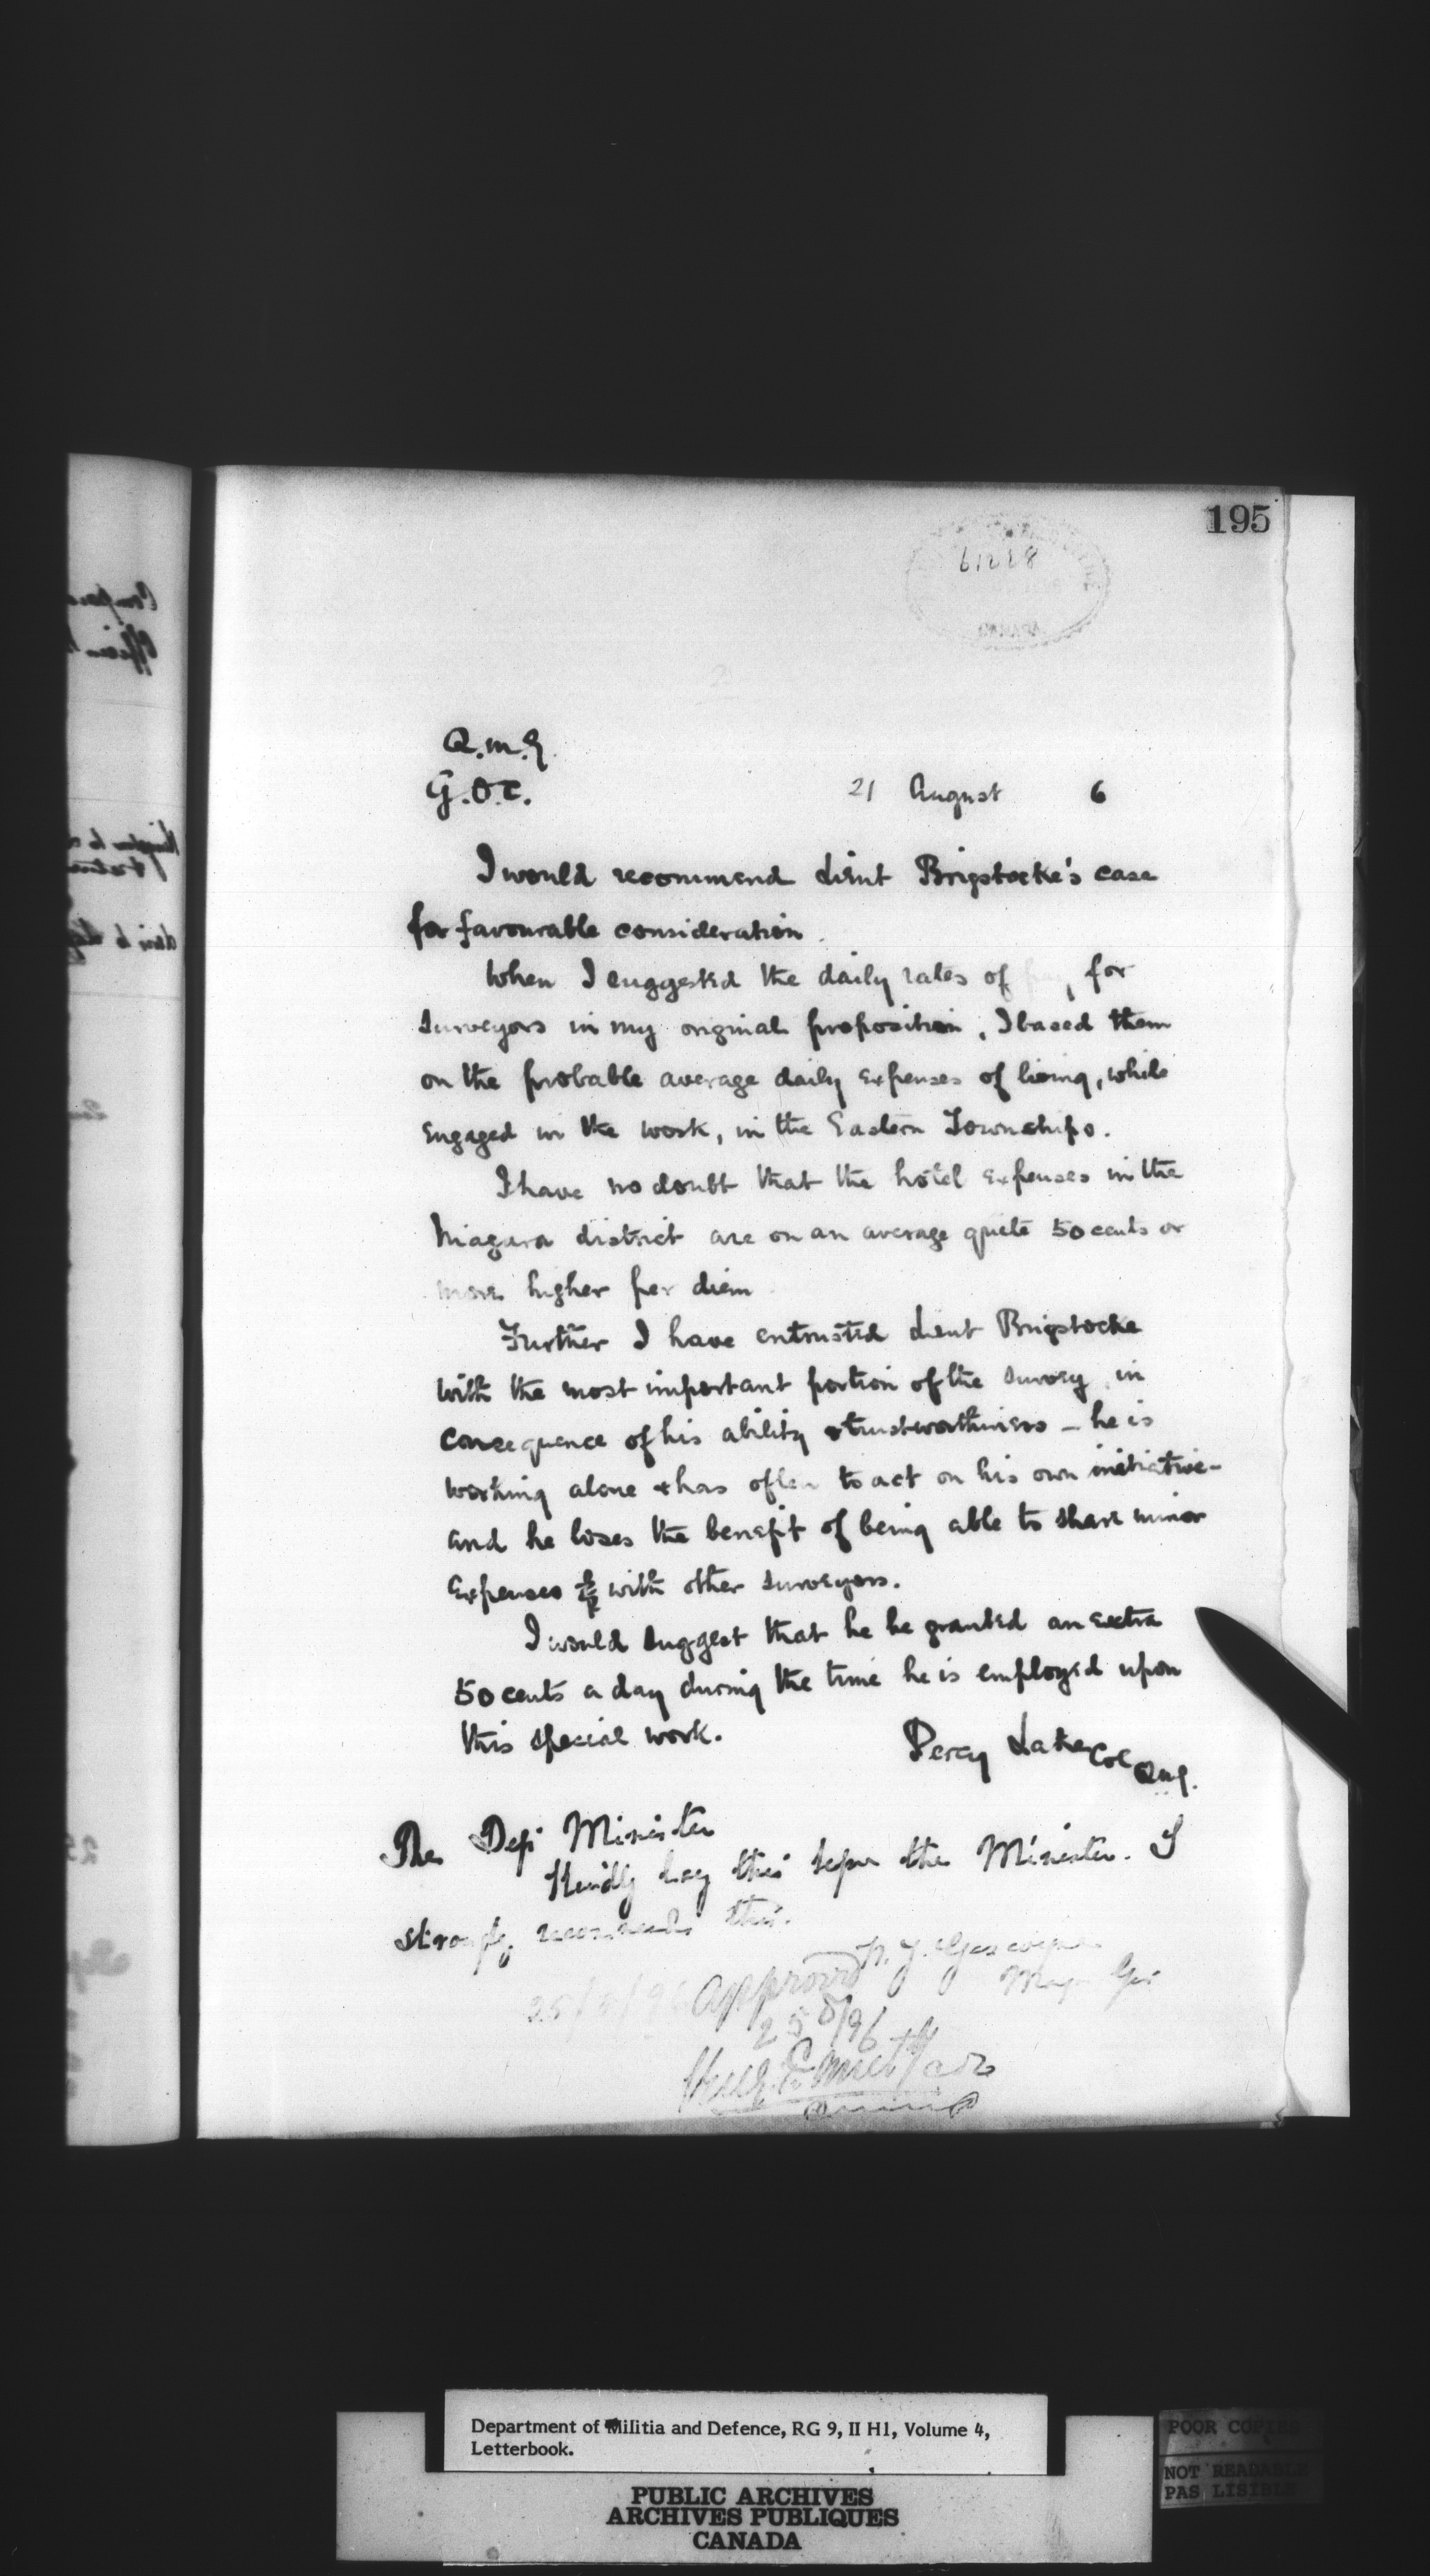 195
61228
Q.M.G.
G.O.C.
21 August 6
I would recommend Lieut Brigstocke's case
for favourable consideration.
When I suggested the daily rates of pay, for
surveyors in my original proposition, I based them
on the probable average daily expenses of living, while
engaged in the work, in the Eastern Townships.
I have no doubt that the hotel expenses in the
Niagara district are on an average quite 50 cents or
more higher per diem
Further I have entrusted Lieut Brigstocke
with the most important portion of the survey, in
consequence of his ability & trustworthiness - he is
working alone & has often to act on his own initiative -
and he loses the benefit of being able to share minor
expenses with other surveyors.
I would suggest that he be granted an extra
50 cents a day during the time he is employed upon
this special work.
Percy Lake Col QMG.
The Dep Minister
Kindly lay this before the Minister. I
strongly recommend this.
Gascoigne
Major Gen
25/8/96 Approved
25 8/96
Department of Militia and Defence, RG 9, II H1, Volume 4,
Letterbook.
PUBLIC ARCHIVES
ARCHIVES PUBLIQUES
CANADA
POOR COPIES
NOT READABLE
PAS LISIBLE